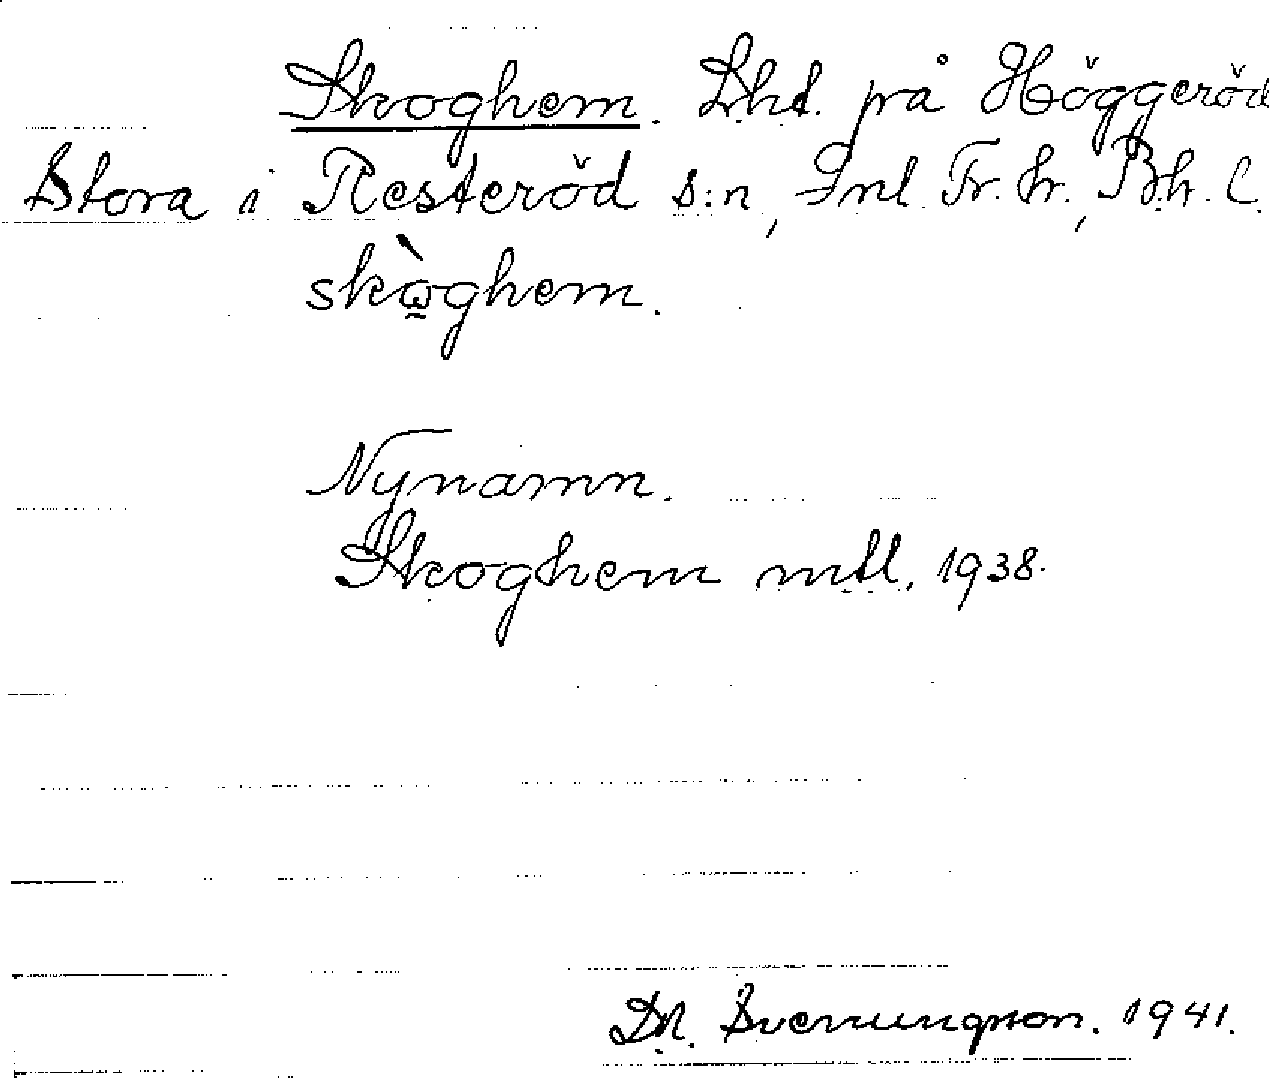 Skoghem. Lht. på Höggeröd
Stora i Resteröd s:n, Inl. Fr. hr., Bh. l.
skòghem.
Nynamn.
Skoghem mtl. 1938.
Svenungsson. 1941.